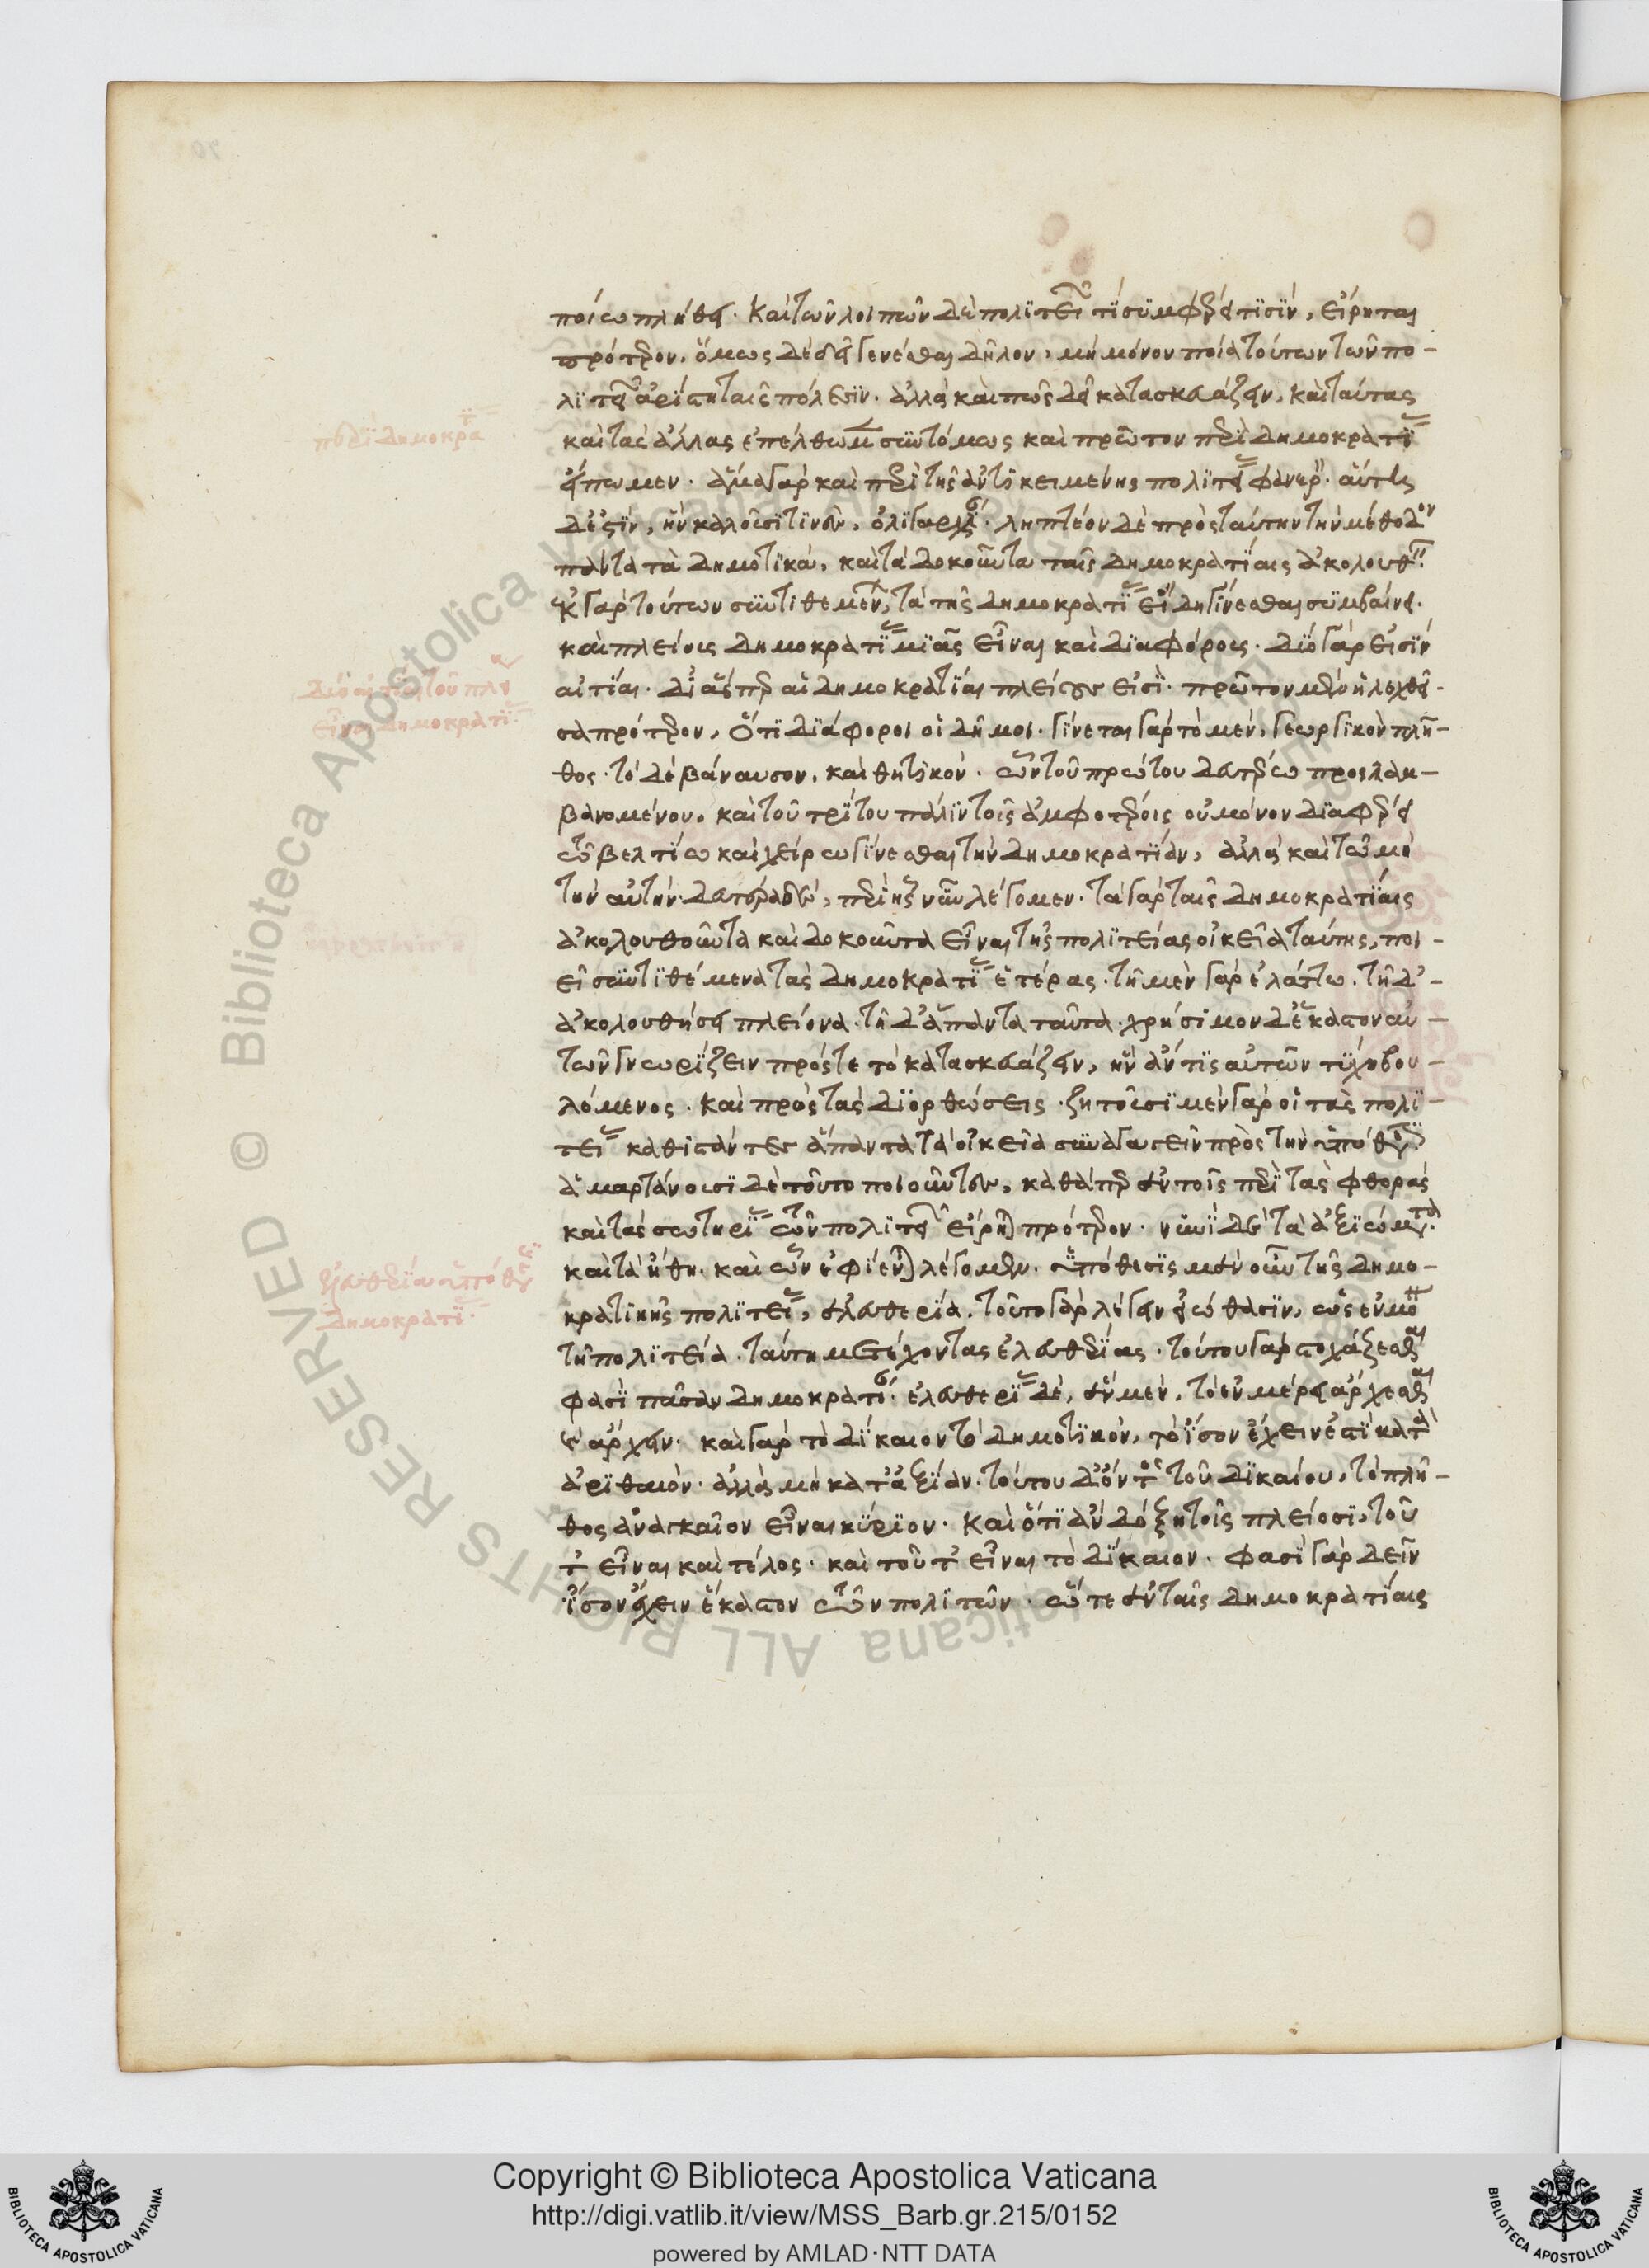 ποίω πλήθει. καὶ τῶν λοιπῶν δὲ πολιτειῶν τίς συμφέρει τισίν, εἴρηται
πρότερον. ὅμως δὲ δεῖ γενέσθαι δῆλον, μὴ μόνον ποία τούτων τῶν πο-
λιτειῶν ἀρίστη ταῖς πόλεσιν. ἀλλὰ καὶ πῶς δεῖ κατασκευάζειν, καὶ ταύτας
καὶ τὰς ἄλλας ἐπέλθωμεν συντόμως καὶ πρῶτον περὶ δημοκρατίας
εἴπωμεν. ἅμα γὰρ καὶ περὶ τῆς ἀντικειμένης πολιτείας φανερόν. αὕτη
δ' ἐστὶν, ἣν καλοῦσί τινες, ὀλιγαρχίαν. ληπτέον δὲ πρὸς ταύτην τὴν μέθοδον
πάντα τὰ δημοτικὰ, καὶ τὰ δοκοῦντα ταῖς δημοκρατίαις ἀκολουθεῖν.
ἐκ γὰρ τούτων συντιθεμένων, τὰ τῆς δημοκρατίας εἴδη γίνεσθαι συμβαίνει.
καὶ πλείους δημοκρατίας μιᾶς εἶναι καὶ διαφόρους. δύο γάρ εἰσιν
αἰτίαι. δι' ἅσπερ αἱ δημοκρατίαι πλείους εἰσί. πρῶτον μὲν ἡ λεχθεῖ-
σα πρότερον, ὅτι διάφοροι οἱ δῆμοι. γίνεται γὰρ τὸ μὲν, γεωργικὸν πλῆ-
θος. τὸ δὲ βάναυσον, καὶ θητικόν. ὧν τοῦ πρώτου δευτέρω προσλαμ-
βανομένου. καὶ τοῦ τρίτου πάλιν τοῖς ἀμφοτέροις οὐ μόνον διαφέρει
τῶ βελτίω καὶ χείρω γίνεσθαι τὴν δημοκρατίαν, ἀλλὰ καὶ τῶ μὴ
τὴν αὐτήν. δευτέρα δὲ, περὶ ἧς νῦν λέγομεν. τὰ γὰρ ταῖς δημοκρατίαις
ἀκολουθοῦντα καὶ δοκοῦντα εἶναι τῆς πολιτείας οἰκεῖα ταύτης, ποι-
εῖ συντιθέμενα τὰς δημοκρατίας ἑτέρας. τῇ μὲν γὰρ ἐλάττω. τῇ δ' -
ἀκολουθήσει πλείονα. τῇ δ' ἅπαντα ταῦτα. χρήσιμον δ' ἕκαστον αὐ-
τῶν γνωρίζειν πρός τε τὸ κατασκευάζειν, ἣν ἄν τις αὐτῶν τύχη βου-
λόμενος. καὶ πρὸς τὰς διορθώσεις. ζητοῦσι μὲν γὰρ οἱ τὰς πολι-
τείας καθιστάντες ἅπαντα τὰ οἰκεῖα συναγαγεῖν πρὸς τὴν ὑπόθεσιν.
ἁμαρτάνουσι δὲ τοῦτο ποιοῦντες, καθάπερ ἐν τοῖς περὶ τὰς φθορὰς
καὶ τὰς σωτηρίας τῶν πολιτειῶν εἴρηται πρότερον. νυνὶ δὲ τὰ ἀξιώματα
καὶ τὰ ἤθη. καὶ ὧν ἐφίενται λέγομεν. ὑπόθεσις μὲν οὖν τῆς δημο-
κρατικῆς πολιτείας, ἐλευθερία. τοῦτο γὰρ λέγειν εἰώθασιν, ὡς ἐν μόνη
τῇ πολιτεία ταύτη μετέχοντας ἐλευθερίας. τούτου γὰρ στοχάζεσθαι
φασὶ πᾶσαν δημοκρατίαν. ἐλευθερίας δὲ, ἓν μὲν, τὸ ἐν μέρει ἄρχεσθαι
καὶ ἄρχειν. καὶ γὰρ τὸ δίκαιον τὸ δημοτικὸν, τὸ ἴσον ἔχειν ἐστὶ κατὰ
ἀριθμόν. ἀλλὰ μὴ κατ' ἀξίαν. τούτου δ' ὄντος τοῦ δικαίου, τὸ πλῆ-
θος ἀναγκαῖον εἶναι κύριον. καὶ ὅτι ἂν δόξη τοῖς πλείοσι, τοῦ
τ' εἶναι καὶ τέλος. καὶ τοῦ τ' εἶναι τὸ δίκαιον. φασὶ γὰρ δεῖν
ἴσον ἔχειν ἕκαστον τῶν πολιτῶν. ὥστε ἐν ταῖς δημοκρατίαις
περὶ δημοκρατίας
δύο αἰτίαι τοῦ πλείους
εἶναι δημοκρατίας
ἐλευθερία ὑπόθεσις
δημοκρατίας
© Biblioteca Apostolica Vaticana ALL RIGHTS RESERVED
Copyright © Biblioteca Apostolica Vaticana
http://digi.vatlib.it/view/MSS_Barb.gr.215/0152
powered by AMLAD·NTT DATA
BIBLIOTECA APOSTOLICA VATICANA
BIBLIOTECA APOSTOLICA VATICANA